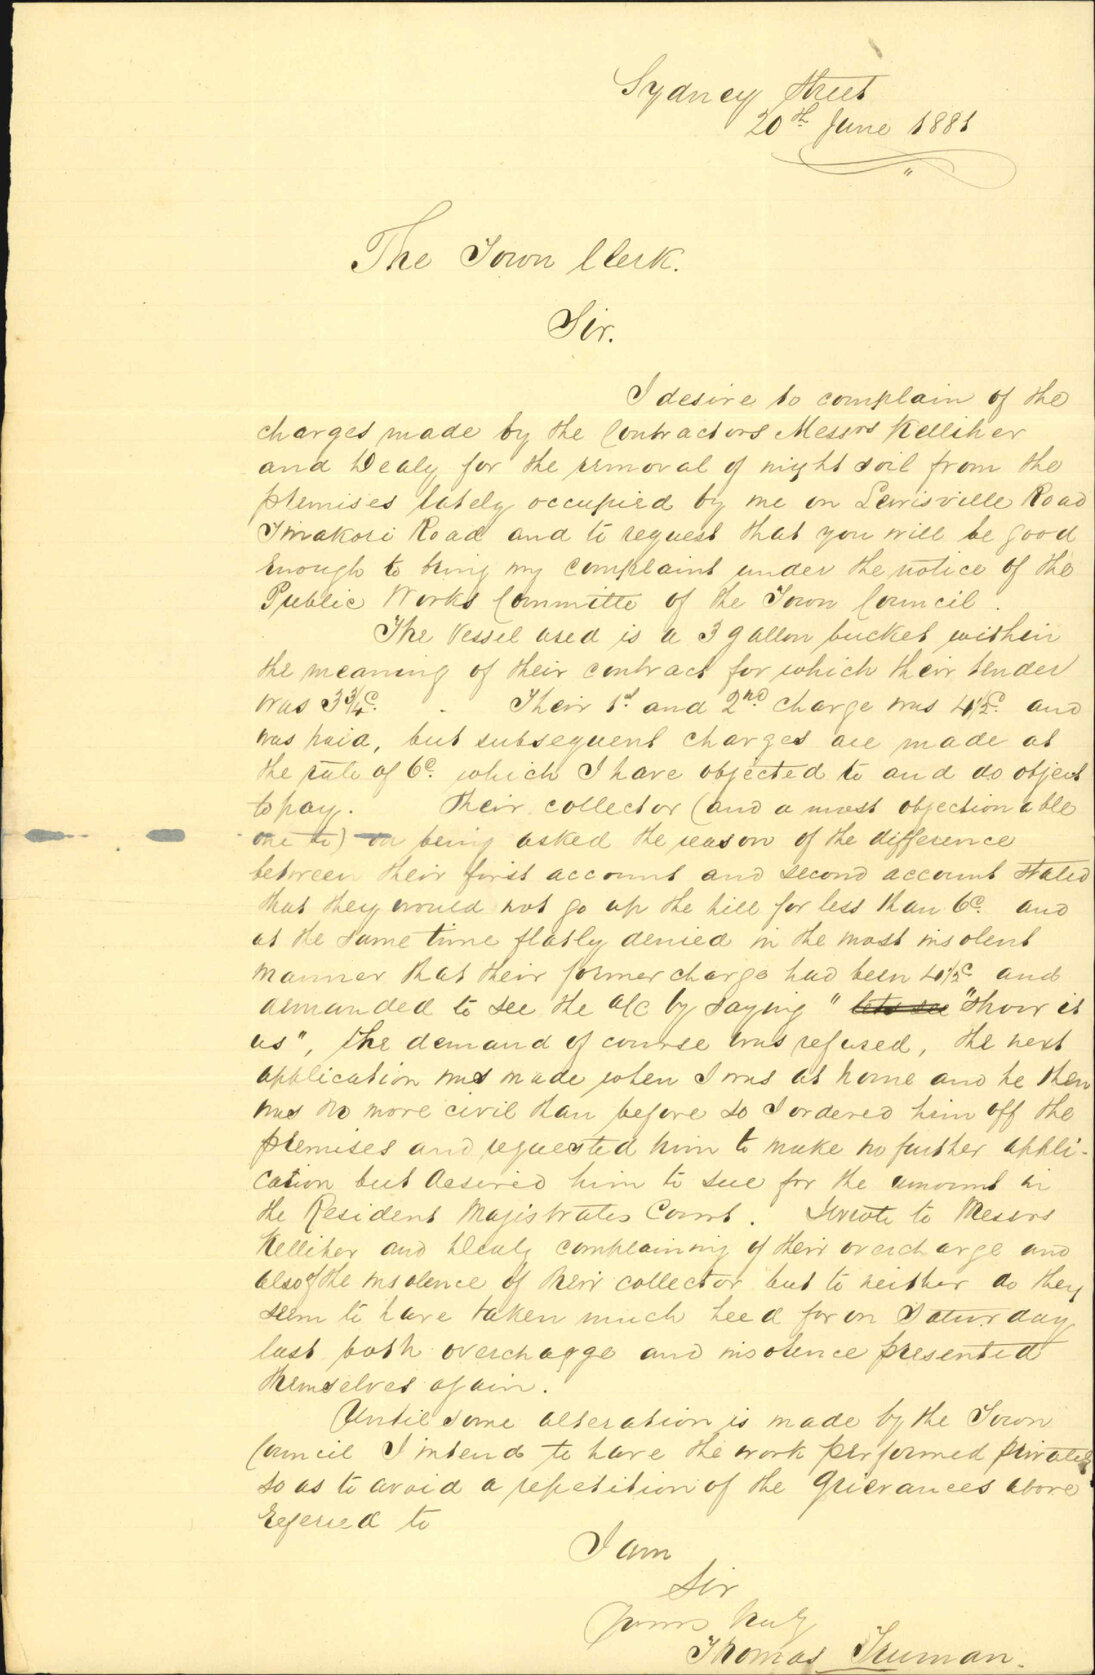 Sydney Street
20th June 1881
The Town Clerk.
Sir.
I desire to complain of the
charges made by the Contractors Messrs Kelliher
and Dealy for the removal of night soil from the
premises lately occupied by me on Lewisville Road
Tinakori Road and to request that you will be good
enough to bring my complaint under the notice of the
Public Works Committe of the Town Council.
The Vessel used is a 3 gallon bucket within
the meaning of their contract for which their tender
was 3¾d. Their 1st and 2nd charge was 4½d. and
was paid, but subsequent charges are made at
the rate of 6d. which I have objected to and do object
to pay. Their collector (and a most objectionable
one to) on being asked the reason of the difference
between their first account and second account stated
that they would not go up the hill for less than 6d. and
at the same time flatly denied in the most insolent
manner that their former charge had been 4½d and
demanded to see the a/c by saying " lets see "Show it
us", the demand of course was refused, the next
application was made when I was at home and he then
was no more civil than before so I ordered him off the
premises and requested him to make no further appli-
cation but desired him to sue for the amount in
the Resident Magistrates Court. I wrote to Messrs
Kelliher and Dealy complaining of their overcharge and
also of the insolence of their collector but to neither do they
seem to have taken much heed for on Saturday
last both overchagge and insolence presented
themselves again.
Until some alteration is made by the Town
Council I intend to have the work performed privately
so as to avoid a repetition of the grievances above
referred to
I am
Sir
Yours truly
Thomas Truman.